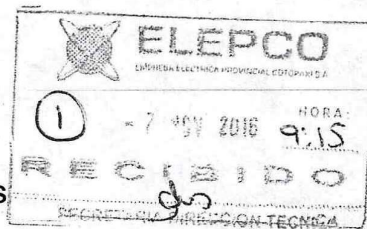 ELEPCO
EMPRESA ELECTRICA PROVINCIAL COTOPAXI S.A
1 - 7 NOV 2016 HORA: 9:15
RECIBIDO
S
SECRETARIA DIRECCION TECNICA